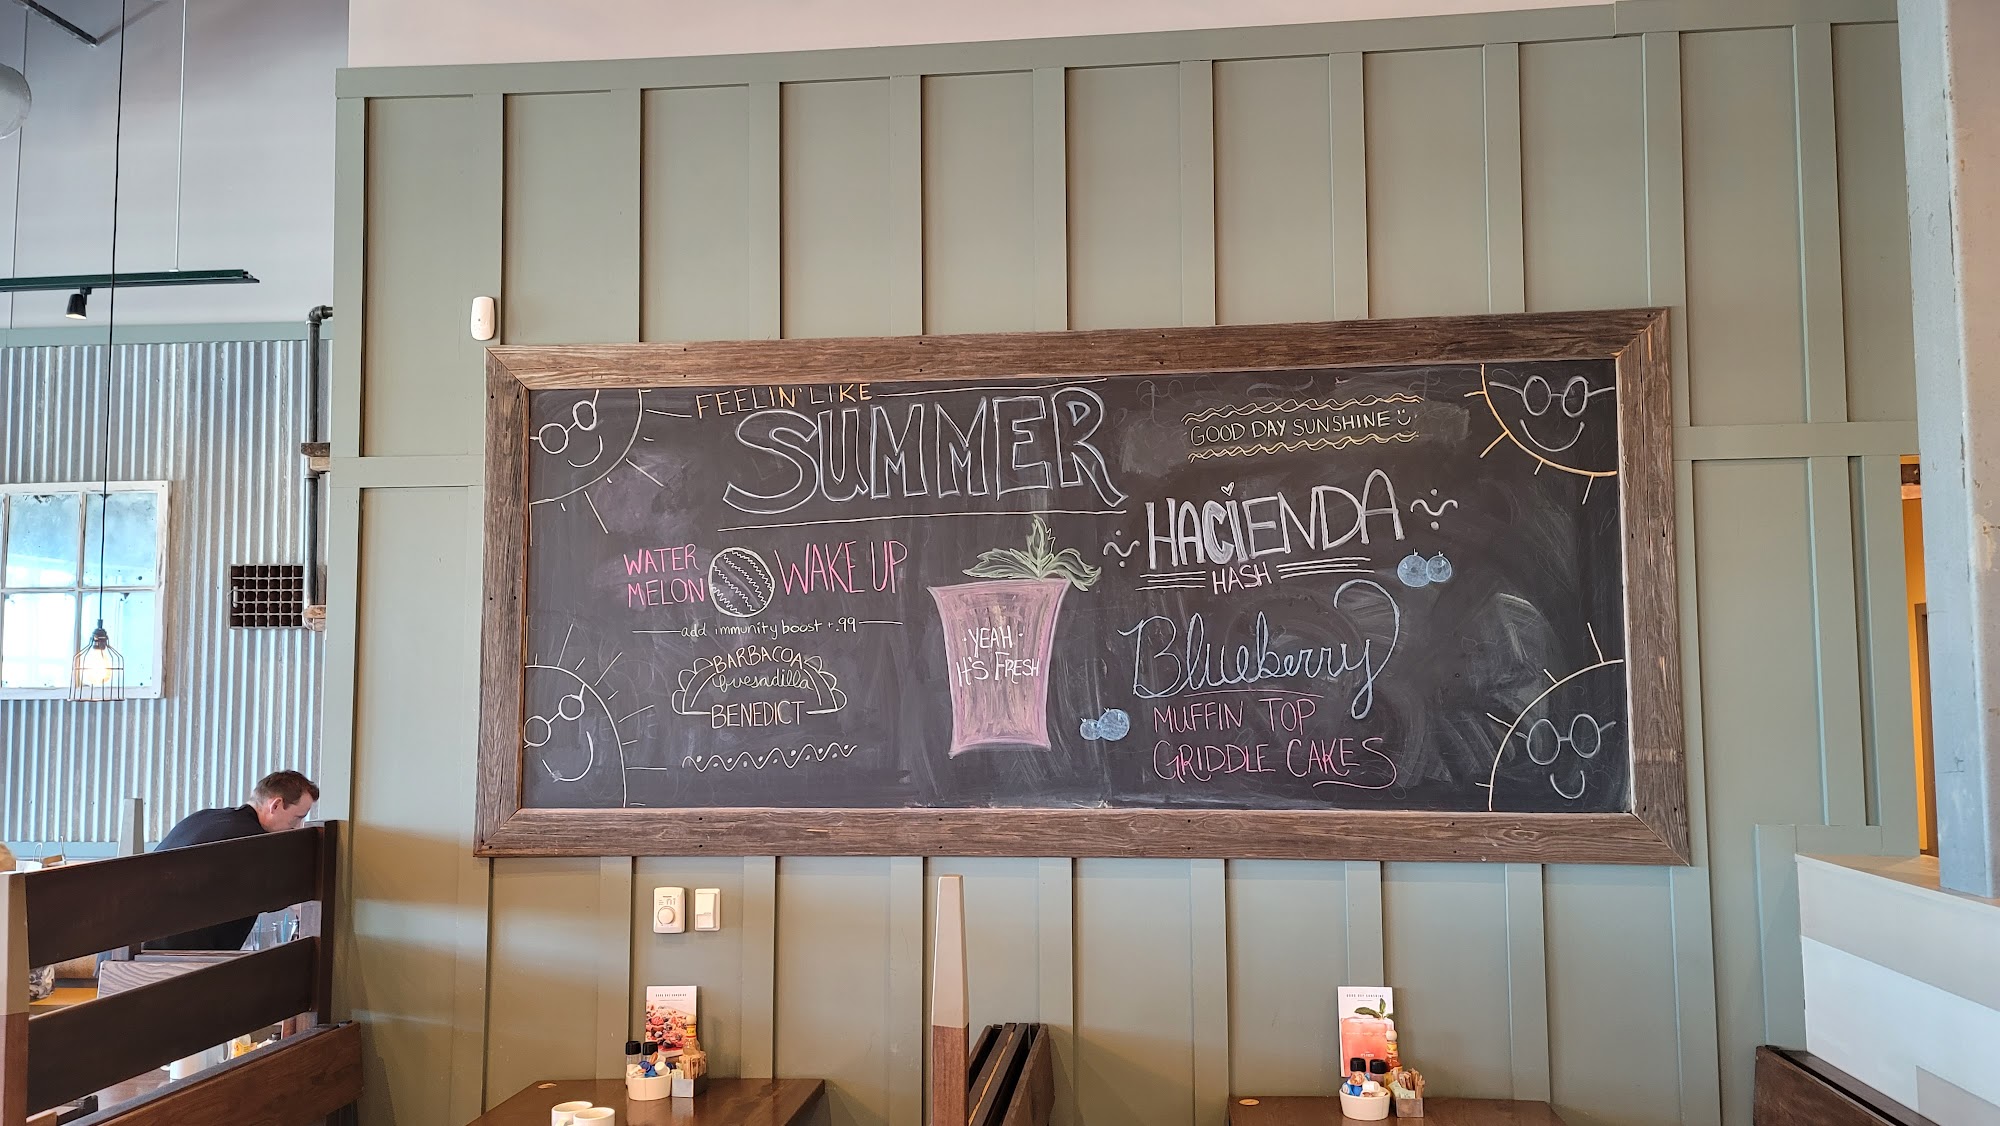 FEELIN' LIKE
SUMMER
GOOD DAY SUNSHINE
WATER
MELON
WAKE UP
add immunity boost +.99
BARBACOA
Quesadilla
BENEDICT
·YEAH·
IT'S FRESH
HACIENDA
HASH
Blueberry
MUFFIN TOP
GRIDDLE CAKES